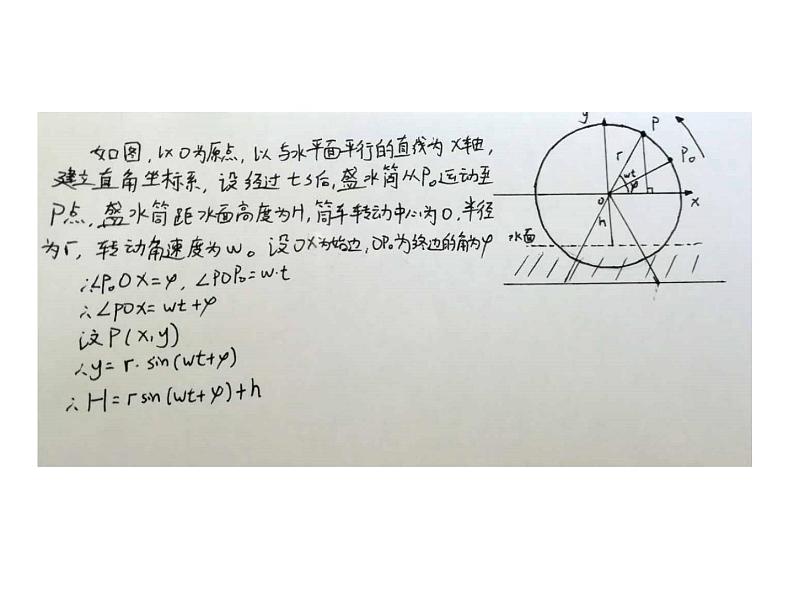 如图,以O为原点,以与水平面平行的直线为x轴,
建立直角坐标系,设经过ts后,盛水筒从P₀运动至
P点,盛水筒距水面高度为H,筒车转动中心为O,半径
为r,转动角速度为w。设OX为始边,OP₀为终边的角为φ
∴∠P₀OX=φ,∠POP₀=w·t
∴∠POX=wt+φ
设P(x,y)
∴y=r·sin(wt+φ)
∴H=rsin(wt+φ)+h
y
P
P₀
r
wt
φ
O
x
h
水面